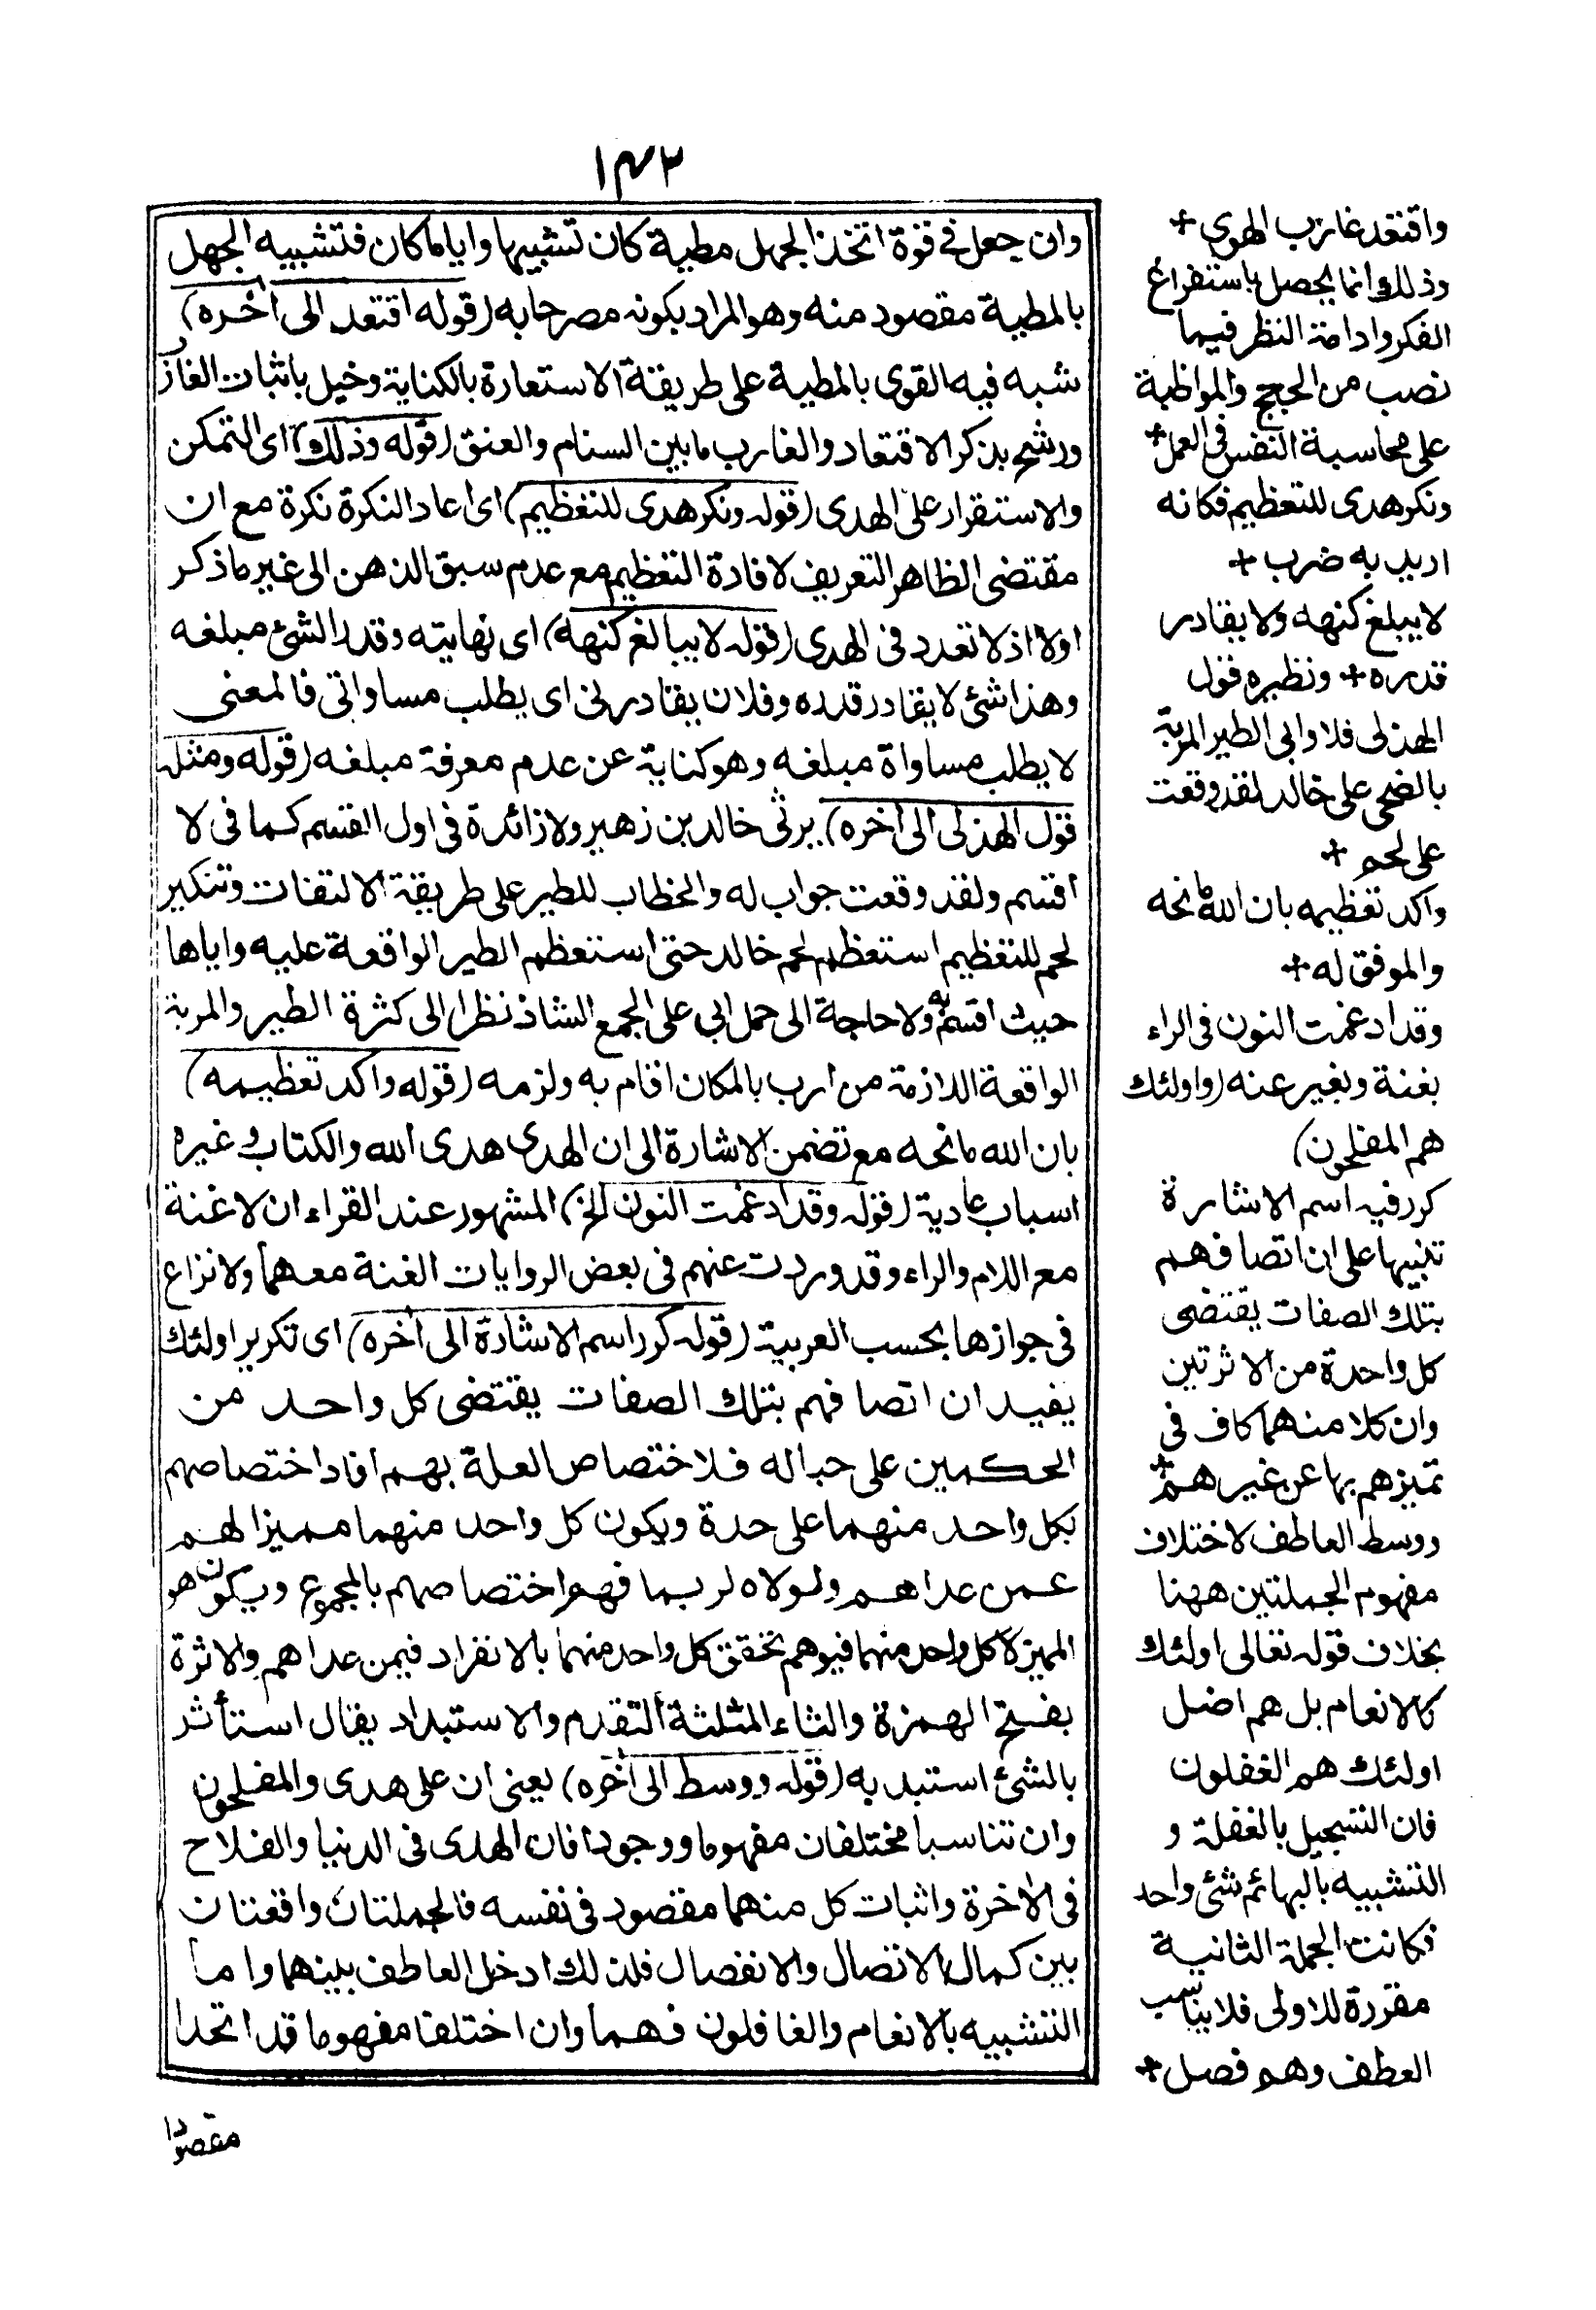 ١٤٣
وان جعل في قوة اتخذ الجهل مطية كان تشبيها واياما كان فتشبيه الجهل
بالمطية مقصود منه وهو المراد بكونه مصرحا به (قوله اقتعد الى أخره)
شبه فيه القوى بالمطية على طريقة الاستعارة بالكناية وخيل باثبات الغارب
ورشح بذكر الاقتعاد والغارب ما بين السنام والعنق (قوله وذلك) اى التمكن
والاستقرار على الهدى (قوله ونكر هدى للتعظيم) اى اعاد النكرة نكرة مع ان
مقتضى الظاهر التعريف لافادة التعظيم مع عدم سبق الذهن الى غير ما ذكر
اولا اذ لا تعدد فى الهدى (قوله لا يبالغ كنهه) اى نهايته وقدر الشئ مبلغه
وهذا شئ لا يقادر قدره وفلان يقادرنى اى يطلب مساواتى فالمعنى
لا يطلب مساواة مبلغه وهو كناية عن عدم معرفة مبلغه (قوله ومثله
قول الهذلى الى أخره) يرثى خالد بن زهير ولا زائدة فى اول القسم كما فى لا
اقسم ولقد وقعت جواب له والخطاب للطير على طريقة الالتفات وتنكير
لحم للتعظيم استعظم لحم خالد حتى استعظم الطير الواقعة عليه واياها
حيث اقسم به ولا حاجة الى حمل ابى على الجمع الشاذ نظرا الى كثرة الطير والمربة
الواقعة اللازمة من ارب بالمكان اقام به ولزمه (قوله واكد تعظيمه)
بان الله مانحه مع تضمن الاشارة الى ان الهدى هدى الله والكتاب وغيره
اسباب عادية (قوله وقد ادغمت النون الخ) المشهور عند القراء ان لا غنة
مع اللام والراء وقد وردت عنهم فى بعض الروايات الغنة معهما ولا نزاع
فى جوازها بحسب العربية (قوله كرر اسم الاشارة الى أخره) اى تكرير اولئك
يفيد ان اتصافهم بتلك الصفات يقتضى كل واحد من
الحكمين على حياله فلاختصاص العلة بهم افاد اختصاصهم
بكل واحد منهما على حدة ويكون كل واحد منهما مميزا لهم
عمن عداهم ولولاه لربما فهم اختصاصهم بالمجموع ويكون هو
المميز لا كل واحد منهما فيوهم تحقق كل واحد منهما بالانفراد فيمن عداهم والاثرة
بفتح الهمزة والثاء المثلثة التقدم والاستبداد يقال استأثر
بالشئ استبد به (قوله ووسط الى أخره) يعنى ان على هدى والمفلحون
وان تناسبا مختلفان مفهوما ووجودا فان الهدى فى الدنيا والفلاح
فى الاخرة واثبات كل منهما مقصود فى نفسه فالجملتان واقعتان
بين كمال الاتصال والانفصال فلذلك ادخل العاطف بينهما واما
التشبيه بالانعام والغافلون فهما وان اختلفا مفهوما قد اتحدا
مقصودا
واقتعد غارب الهوى +
وذلك وانما يحصل باستفراغ
الفكر وادامة النظر فيما
نصب من الحجج والمواظبة
على محاسبة النفس فى العمل +
ونكر هدى للتعظيم فكانه
اريد به ضرب +
لا يبلغ كنهه ولا يقادر
قدره + ونظيره قول
الهذلى فلا وابى الطير المربة
بالضحى على خالد لقد وقعت
على لحم +
واكد تعظيمه بان الله مانحه
والموفق له +
وقد ادغمت النون فى الراء
بغنة وبغير عنه (واولئك
هم المفلحون)
كرر فيه اسم الاشارة
تنبيها على ان اتصافهم
بتلك الصفات يقتضى
كل واحدة من الاثرتين
وان كلا منهما كاف فى
تميزهم بها عن غيرهم +
ووسط العاطف لاختلاف
مفهوم الجملتين ههنا
بخلاف قوله تعالى اولئك
كالانعام بل هم اضل
اولئك هم الغفلون
فان التسجيل بالغفلة و
التشبيه بالبهائم شئ واحد
فكانت الجملة الثانية
مقررة للاولى فلا يناسب
العطف وهم فصل +